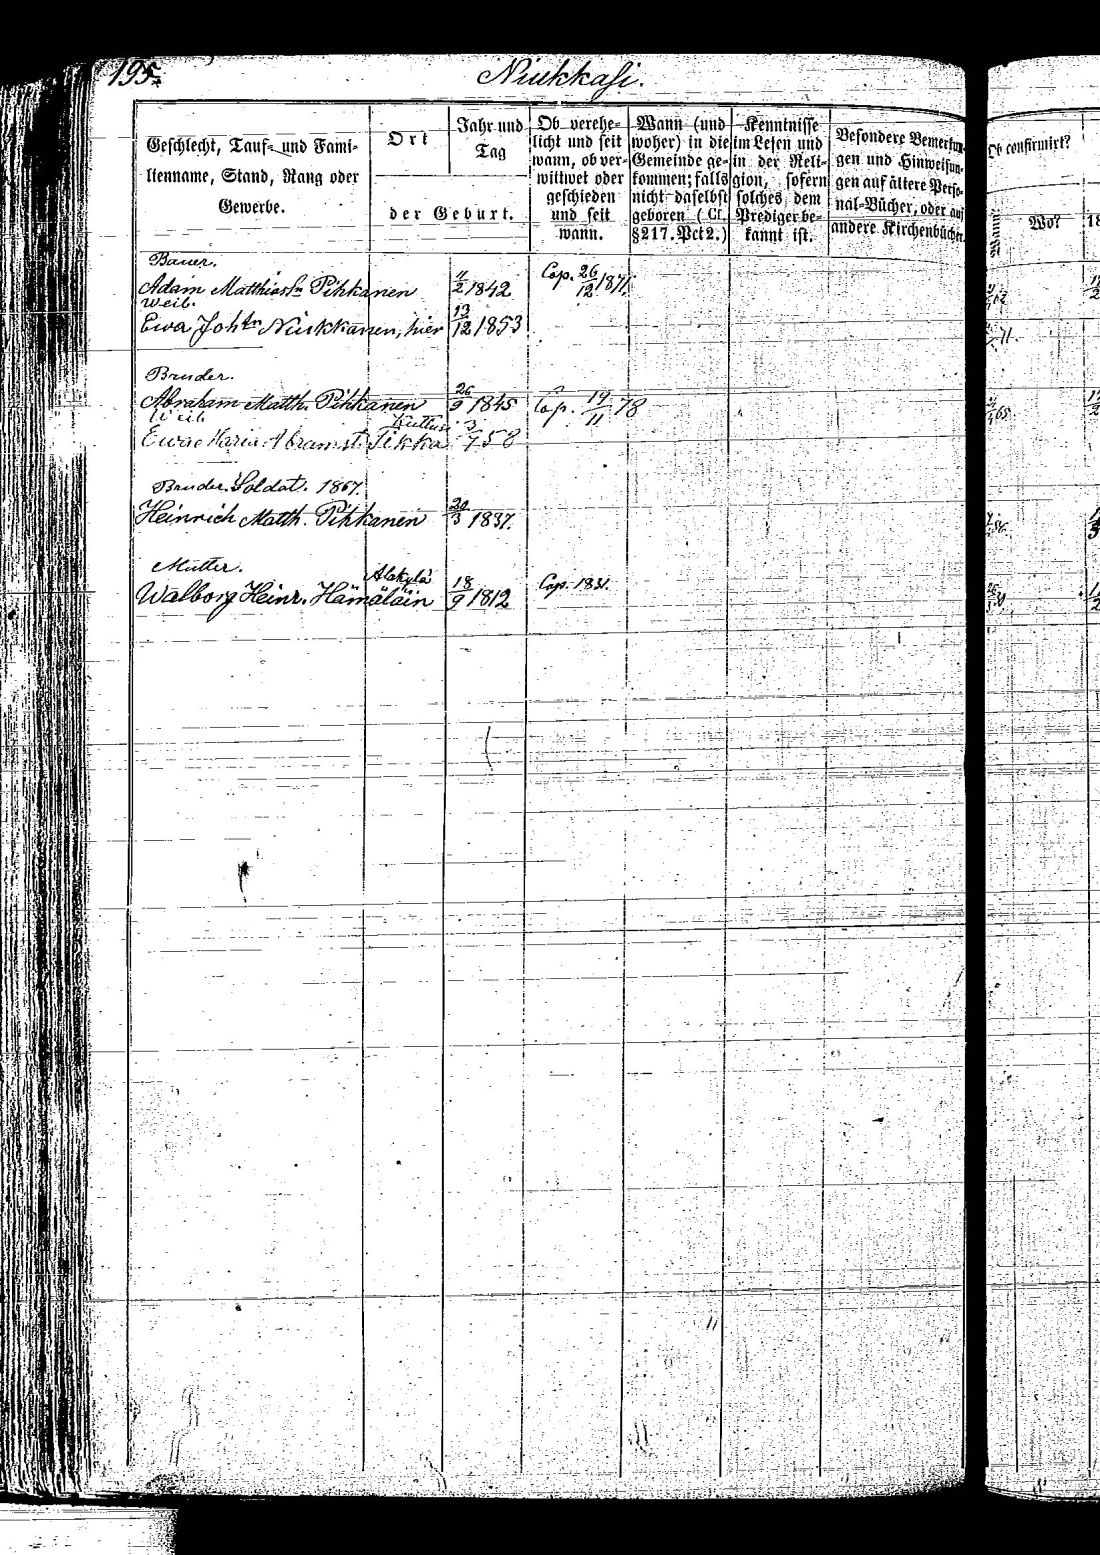 195.
Niukkasi.
Geschlecht, Tauf- und Fami-
lienname, Stand, Rang oder
Gewerbe.
Ort
Jahr und
Tag
der Geburt.
Ob verehe-
licht und seit
wann, ob ver-
wittwet oder
geschieden
und seit
wann.
Wann (und
woher) in die
Gemeinde ge-
kommen; falls
nicht daselbst
geboren (Cf.
§217. Pct 2.)
Kenntnisse
im Lesen und
in der Reli-
gion, sofern
solches dem
Prediger be-
kannt ist.
Besondere Bemerkun-
gen und Hinweisun-
gen auf ältere Perso-
nal-Bücher, oder auf
andere Kirchenbücher
Ob confirmirt?
Wann
Wo?
18
Bauer.
Adam Matthiassn Pihkanen 11/2 1842 Cop. 26/12 1871.
Weib.
Ewa Johtr Niukkanen, hier 13/12 1853
Bruder.
Abraham Matth. Pihkanen 26/9 1845 Cop. 19/11 78
Weib
Ewa Maria Abramst. Sikka 3/7 58
Bruder. Soldat. 1867.
Heinrich Matth. Pihkanen 20/3 1837.
Mutter.
Alakylä
Walborg Heinr. Hämäläin 18/9 1812 Cop. 1831.